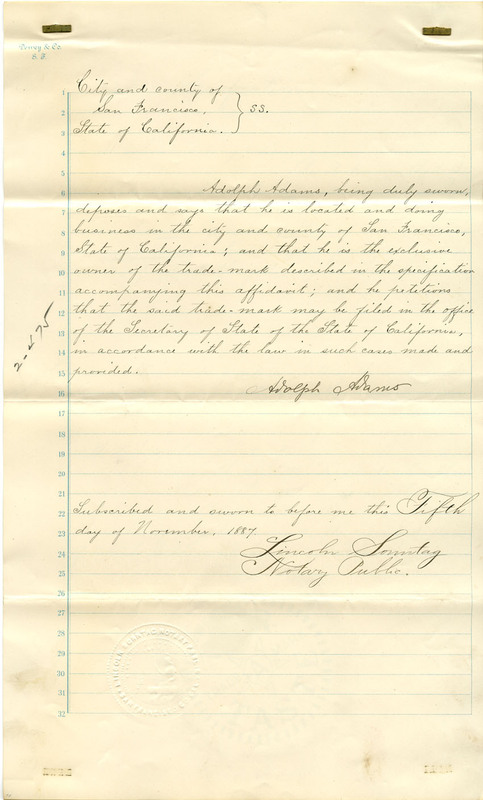 City and county of
San Francisco. } SS.
State of California.
Adolph Adams, being duly sworn,
deposes and says that he is located and doing
business in the city and county of San Francisco,
State of California; and that he is the exclusive
owner of the trade-mark described in the specification
accompanying this affidavit; and he petitions
that the said trade-mark may be filed in the office
of the Secretary of State of the State of California,
in accordance with the law in such cases made and
provided.
Adolph Adams
Subscribed and sworn to before me this Fifth
day of November, 1887.
Lincoln Sonntag
Notary Public.